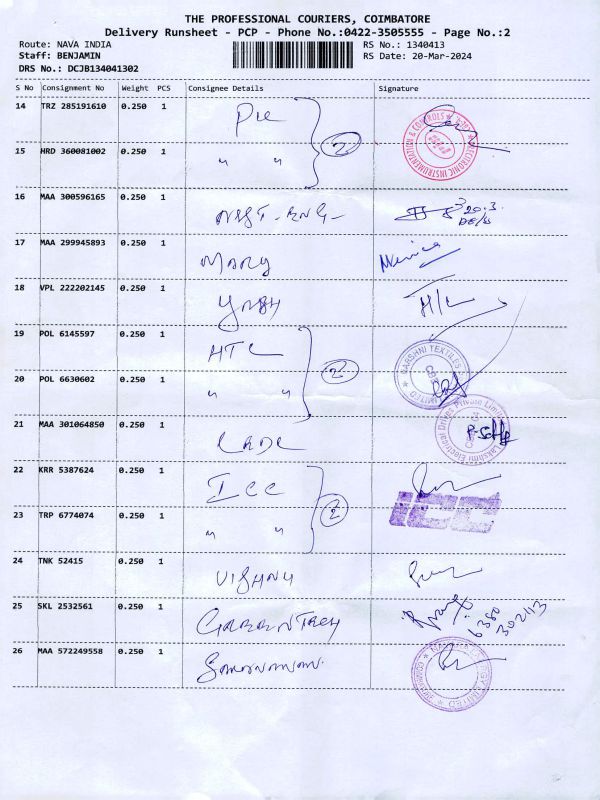 THE PROFESSIONAL COURIERS, COIMBATORE
Delivery Runsheet - PCP - Phone No.:0422-3505555 - Page No.:2
Route: NAVA INDIA RS No.: 1340413
Staff: BENJAMIN RS Date: 20-Mar-2024
DRS No.: DCJB134041302
S No Consignment No Weight PCS Consignee Details Signature
14 TRZ 285191610 0.250 1
2
15 HRD 360081002 0.250 1 " "
16 MAA 300596165 0.250 1
20.3.
17 MAA 299945893 0.250 1 MARY
18 VPL 222202145 0.250 1 YASH H/C
19 POL 6145597 0.250 1 HTC
2
20 POL 6630602 0.250 1 " "
21 MAA 301064850 0.250 1 CADC
22 KRR 5387624 0.250 1 ICC
2 ICC
23 TRP 6774074 0.250 1 " "
24 TNK 52415 0.250 1 VISHNU
25 SKL 2532561 0.250 1
6380
302113
26 MAA 572249558 0.250 1